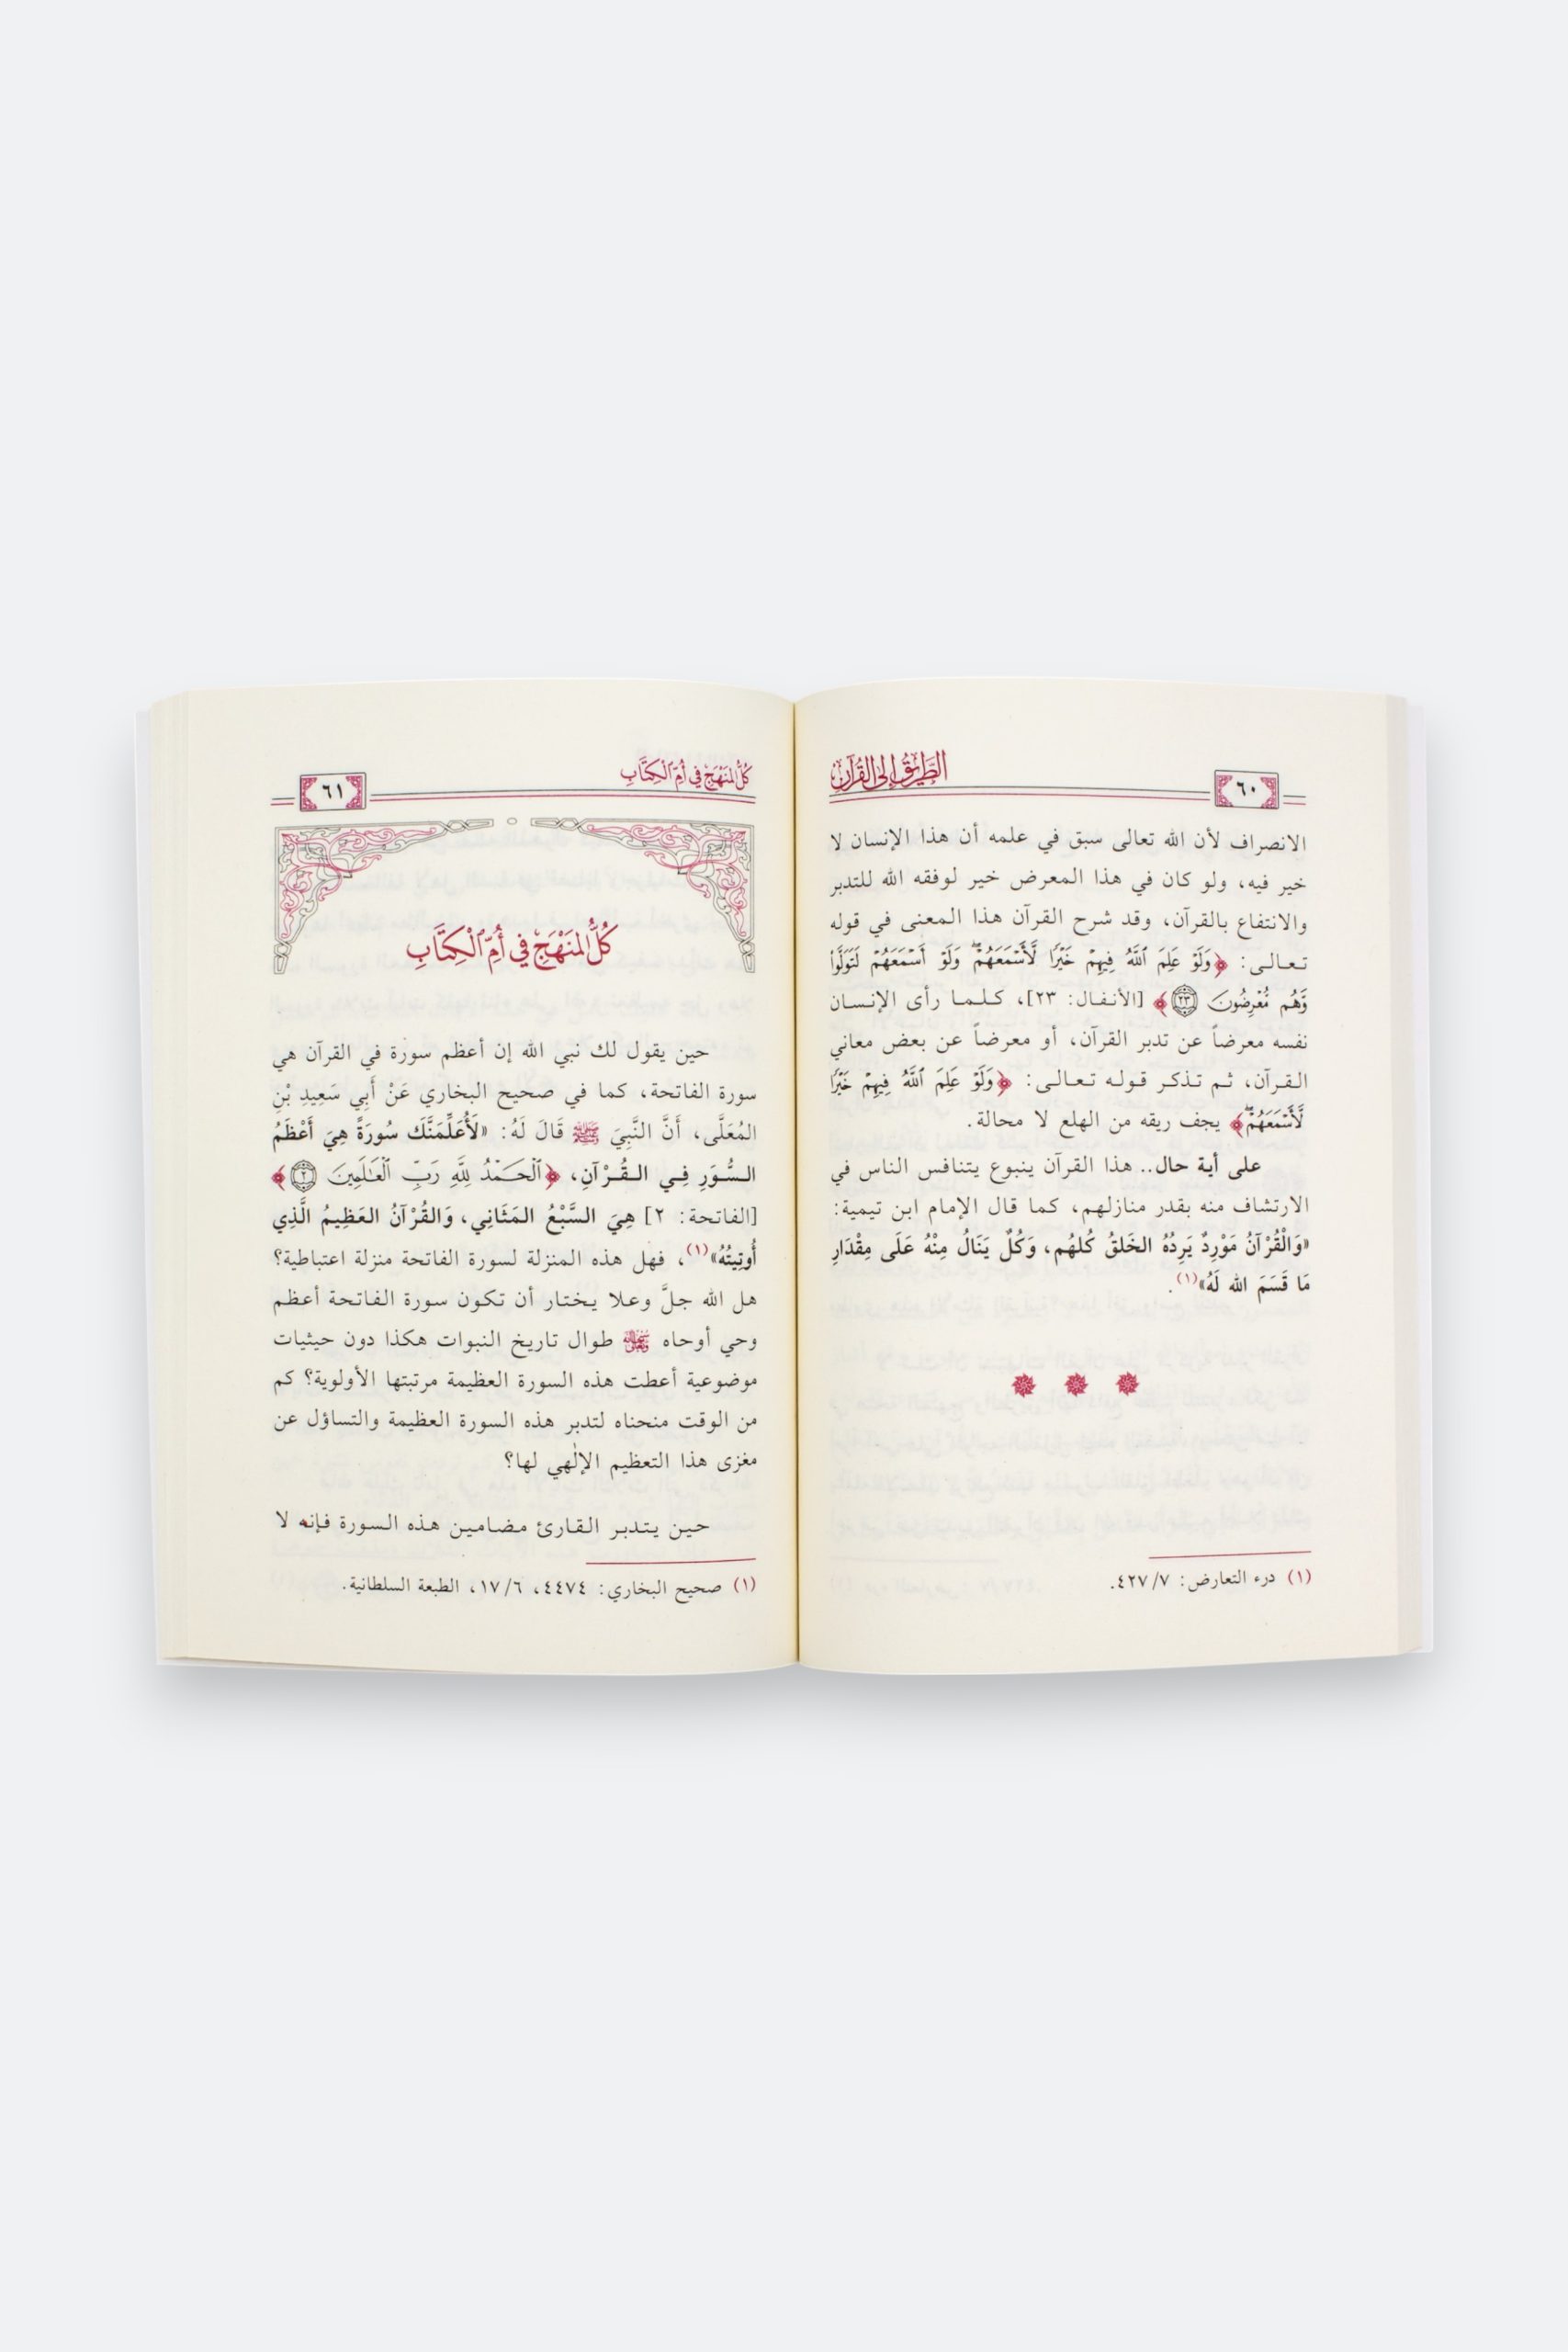 الطَّرِيقُ إِلَى القُرْآنِ
٦٠
الانصراف لأن الله تعالى سبق في علمه أن هذا الإنسان لا
خير فيه، ولو كان في هذا المعرض خير لوفقه الله للتدبر
والانتفاع بالقرآن، وقد شرح القرآن هذا المعنى في قوله
تعالى: ﴿وَلَوْ عَلِمَ ٱللَّهُ فِيهِمْ خَيْرًا لَّأَسْمَعَهُمْ ۖ وَلَوْ أَسْمَعَهُمْ لَتَوَلَّوا۟
وَّهُم مُّعْرِضُونَ ٢٣﴾ [الأنفال: ٢٣]، كلما رأى الإنسان
نفسه معرضاً عن تدبر القرآن، أو معرضاً عن بعض معاني
القرآن، ثم تذكر قوله تعالى: ﴿وَلَوْ عَلِمَ ٱللَّهُ فِيهِمْ خَيْرًا
لَّأَسْمَعَهُمْ ۖ﴾ يجف ريقه من الهلع لا محالة.
على أية حال.. هذا القرآن ينبوع يتنافس الناس في
الارتشاف منه بقدر منازلهم، كما قال الإمام ابن تيمية:
«وَالْقُرْآنُ مَوْرِدٌ يَرِدُهُ الخَلقُ كُلهُم، وَكُلٌ يَنَالُ مِنْهُ عَلَى مِقْدَارِ
مَا قَسَمَ الله لَهُ»(١).
(١) درء التعارض: ٤٢٧/٧.
كُلُّ المَنْهَجِ فِي أُمِّ الْكِتَابِ
٦١
كُلُّ المَنْهَجِ فِي أُمِّ ٱلْكِتَابِ
حين يقول لك نبي الله إن أعظم سورة في القرآن هي
سورة الفاتحة، كما في صحيح البخاري عَنْ أَبِي سَعِيدِ بْنِ
المُعَلَّى، أَنَّ النَّبِيَ ﷺ قَالَ لَهُ: «لَأُعَلِّمَنَّكَ سُورَةً هِيَ أَعْظَمُ
السُّوَرِ فِي القُرْآنِ، ﴿ٱلْحَمْدُ لِلَّهِ رَبِّ ٱلْعَٰلَمِينَ ٢﴾
[الفاتحة: ٢] هِيَ السَّبْعُ المَثَانِي، وَالقُرْآنُ العَظِيمُ الَّذِي
أُوتِيتُهُ»(١)، فهل هذه المنزلة لسورة الفاتحة منزلة اعتباطية؟
هل الله جلَّ وعلا يختار أن تكون سورة الفاتحة أعظم
وحي أوحاه طوال تاريخ النبوات هكذا دون حيثيات
موضوعية أعطت هذه السورة العظيمة مرتبتها الأولوية؟ كم
من الوقت منحناه لتدبر هذه السورة العظيمة والتساؤل عن
مغزى هذا التعظيم الإلٰهي لها؟
حين يتدبر القارئ مضامين هذه السورة فإنه لا
(١) صحيح البخاري: ٤٤٧٤، ١٧/٦، الطبعة السلطانية.